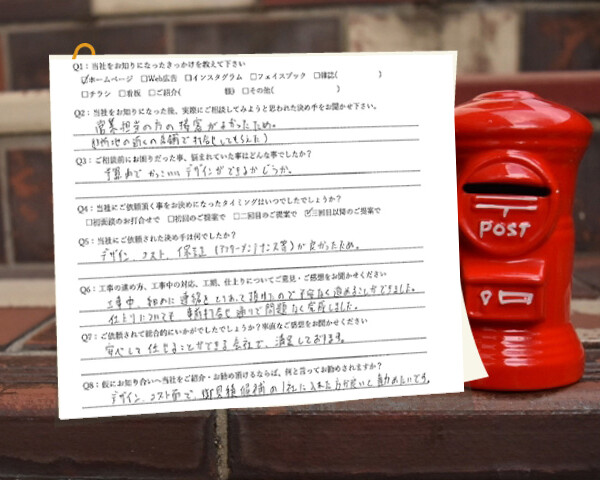 Q1：当社をお知りになったきっかけを教えて下さい
☑ホームページ □Web広告 □インスタグラム □フェイスブック □雑誌( )
□チラシ □看板 □ご紹介( 様) □その他( )
Q2：当社をお知りになった後、実際にご相談してみようと思われた決め手をお聞かせ下さい。
営業担当の方の接客がよかったため。
の近くの店舗で打合せしてもらえた)
Q3：ご相談前にお困りだった事、悩まれていた事はどんな事でしたか？
予算内でかっこいいデザインができるかどうか。
Q4：当社にご依頼頂く事をお決めになったタイミングはいつでしたでしょうか？
□初面談のお打合せで □初回のご提案で □二回目のご提案で ☑三回目以降のご提案で
Q5：当社にご依頼された決め手は何でしたか？
デザイン、コスト、保証(アフターメンテナンス等)が良かったため。
Q6：工事の進め方、工事中の対応、工期、仕上りについてご意見・ご感想をお聞かせください
工事中、細めに連絡をとりあって頂けたので不安なく進めることができました。
仕上りについても事前打合せ通りで問題なく完成しました。
Q7：ご依頼されて総合的にいかがでしたでしょうか？率直なご感想をお聞かせください
安心して任せることができる会社で、満足しております。
Q8：仮にお知り合いへ当社をご紹介・お勧め頂けるならば、何と言ってお勧めされますか？
デザイン、コスト面で、御見積候補の1社に入れた方が良いと勧めたいです。
POST